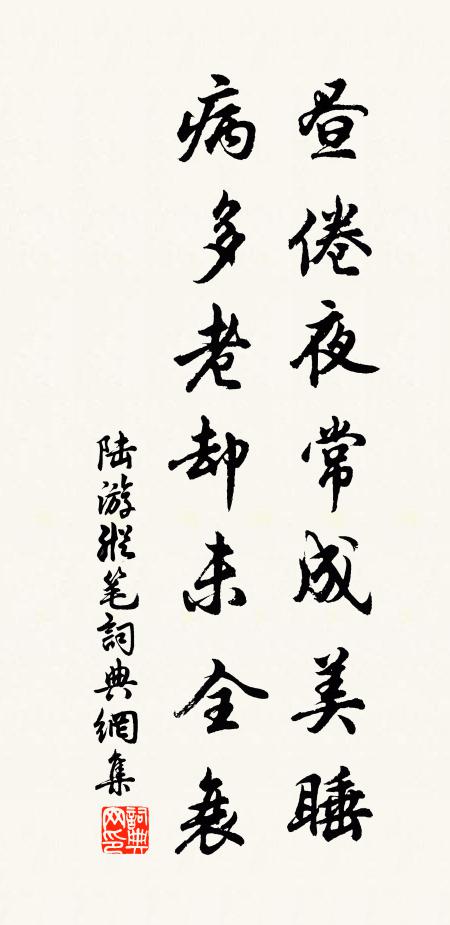 昼倦夜常成美睡
病多老却未全衰
陆游縱笔詞典網集
詞典
网印